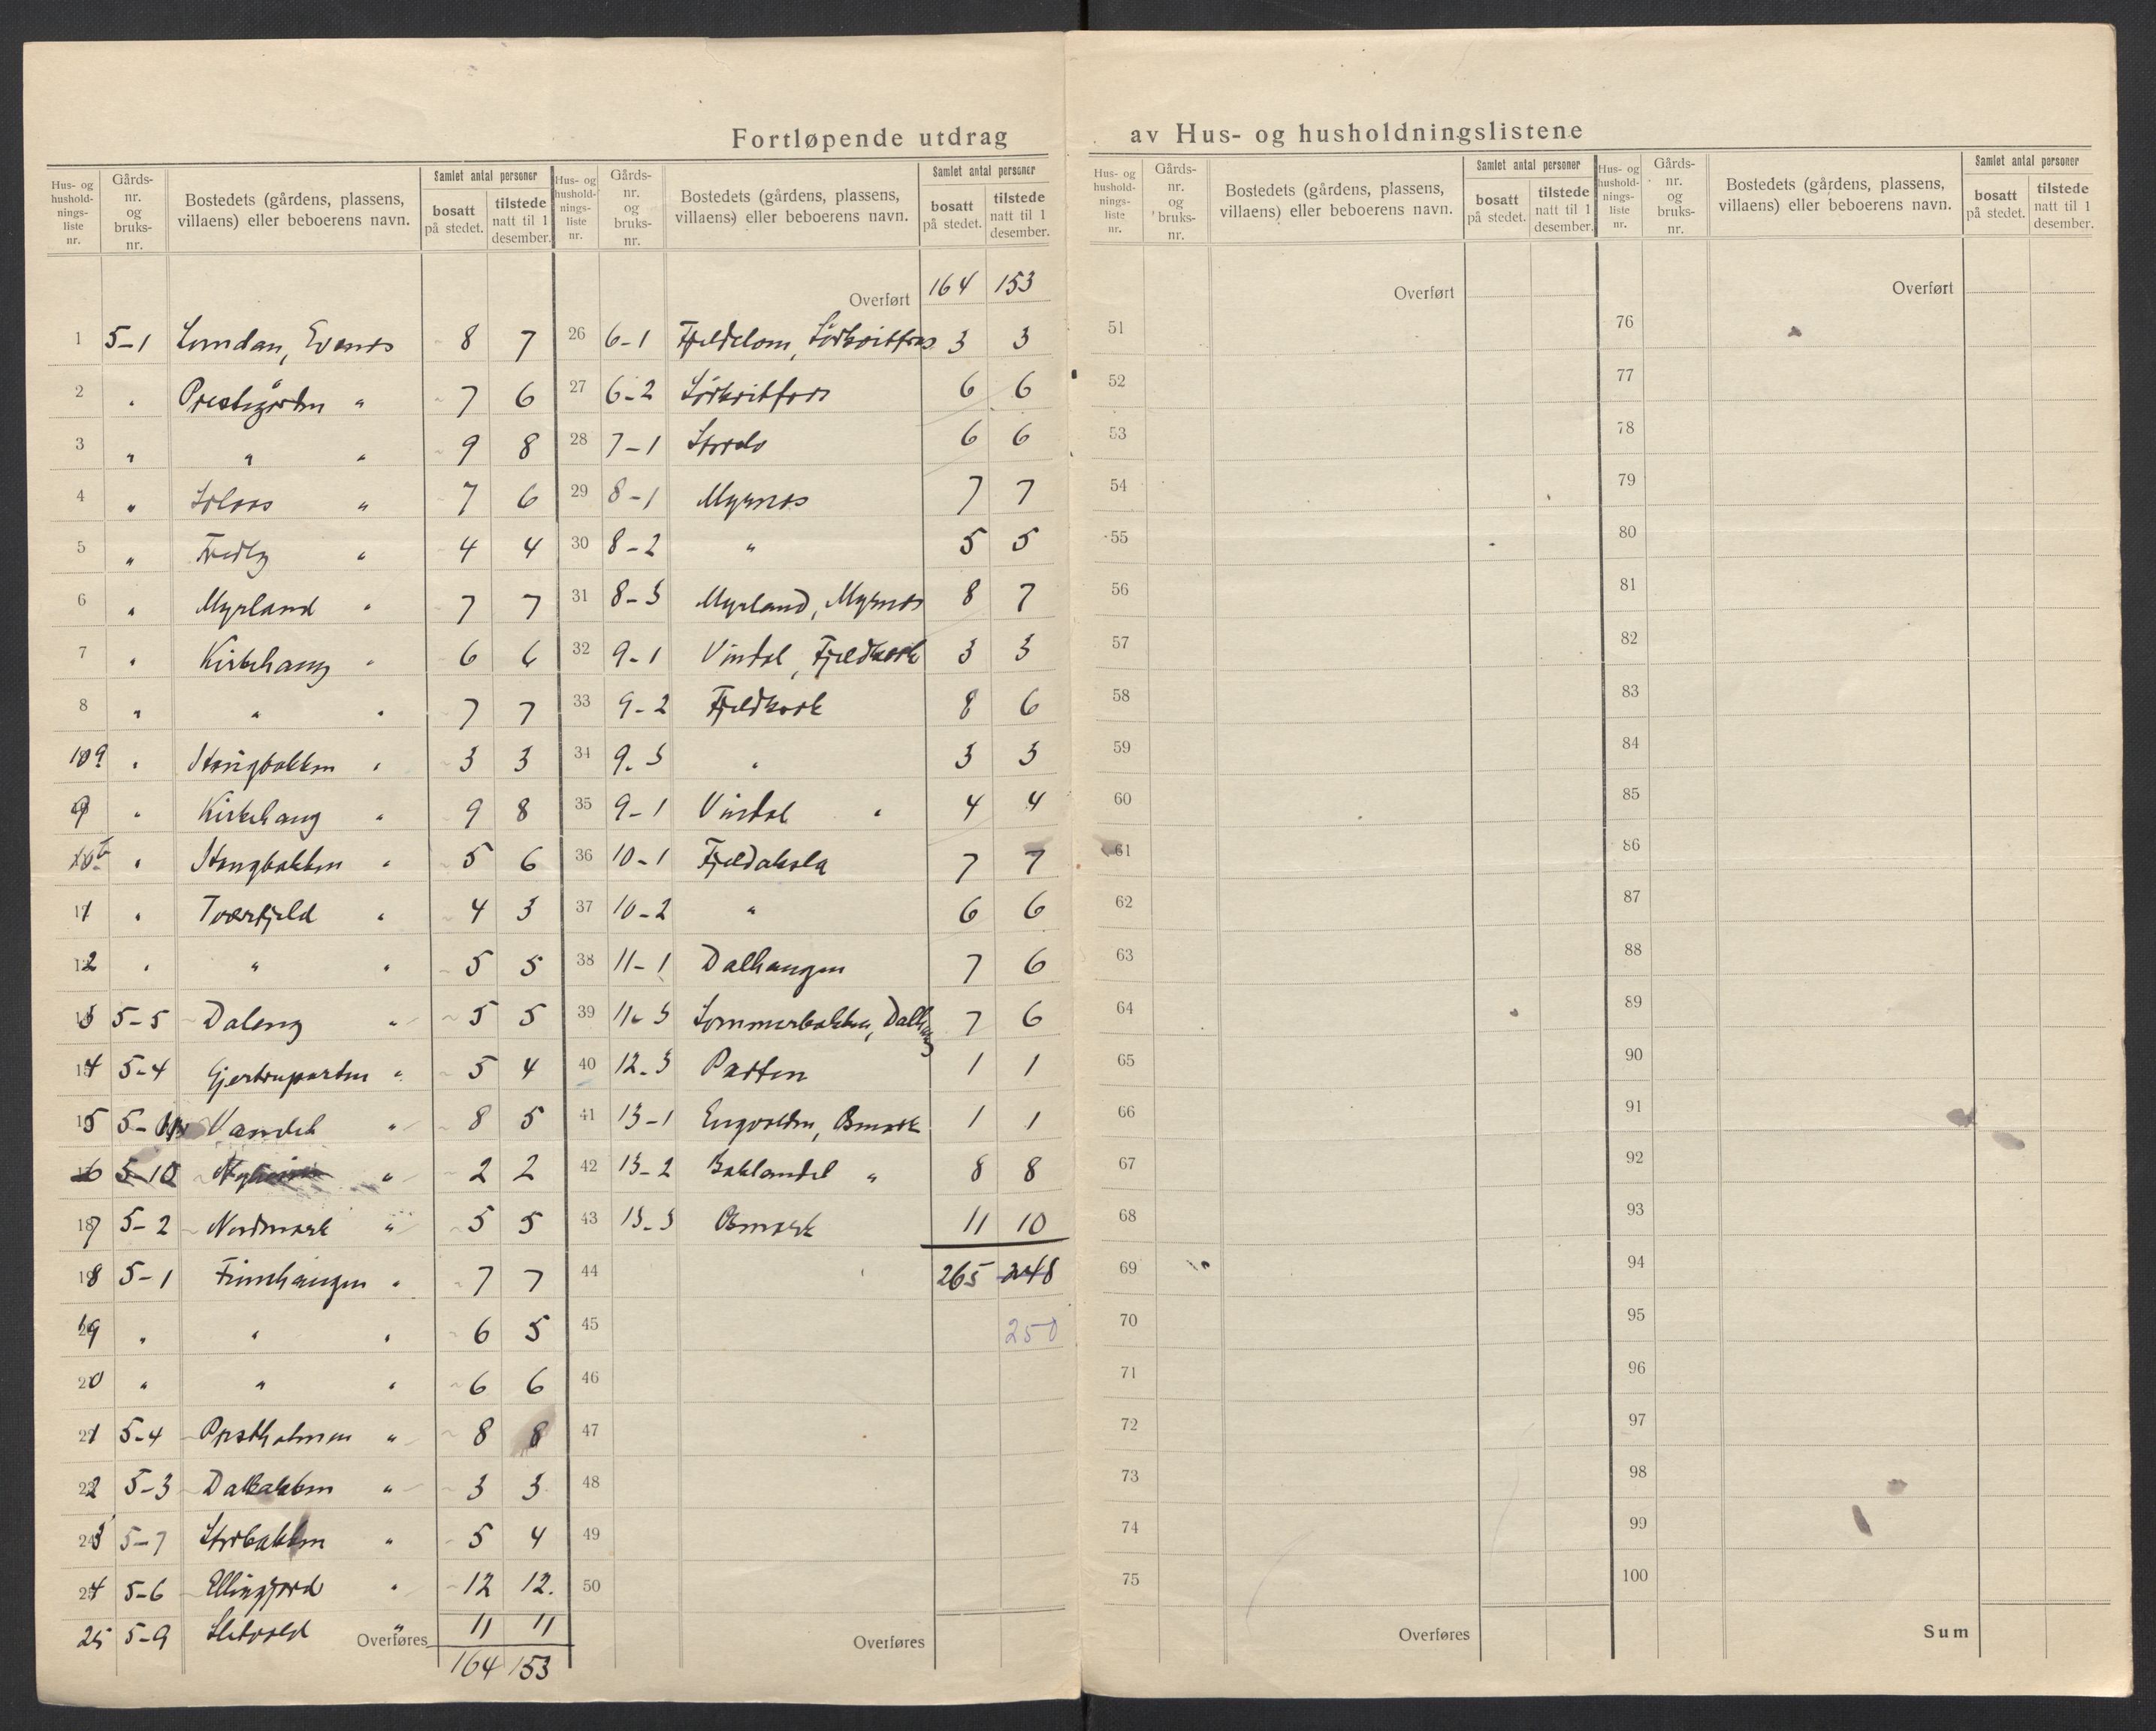 Fortløpende utdrag av Hus- og husholdningslistene
Hus- og hushold-nings-liste nr. Gårds-nr. og bruks-nr. Bostedets (gårdens, plassens, villaens) eller beboerens navn. Samlet antal personer bosatt på stedet. tilstede natt til 1 desember.
1 5-1 Lundan, Evenes 8 7
2 " Prestegården " 7 6
3 " " " 9 8
4 " Solaas " 7 6
5 " Fredly " 4 4
6 " Myrland " 7 7
7 " Kirkehaug " 6 6
8 " " " 7 7
109 " Stengbakken " 3 3
9 " Kirkehaug " 9 8
10b " Stengbakken " 5 6
11 " Tverrfjeld " 4 3
12 " " " 5 5
13 5-5 Daleng " 5 5
14 5-4 Gjertruparten " 5 4
15 5- Vandet " 8 5
16 5-10 " 2 2
17 5-2 Nordmark " 5 5
18 5-1 Finnhaugen " 7 7
19 " " " 6 5
20 " " " 6 6
21 5-4 Prestholmen " 8 8
22 5-3 Dalbakken " 3 3
23 5-7 Storbakken " 5 4
24 5-6 Ellingjord " 12 12.
25 5-9 Sletvold " 11 11
Overføres 164 153
Hus- og hushold-nings-liste nr. Gårds-nr. og bruks-nr. Bostedets (gårdens, plassens, villaens) eller beboerens navn. Samlet antal personer bosatt på stedet. tilstede natt til 1 desember.
Overført 164 153
26 6-1 Fjeldlom, Sørkvitfors 3 3
27 6-2 Sørkvitfors 6 6
28 7-1 6 6
29 8-1 Myrnes 7 7
30 8-2 " 5 5
31 8-3 Myrland, Myrnes 8 7
32 9-1 Vindal, Fjeldkark 3 3
33 9-2 Fjeldkark 8 6
34 9-3 " 3 3
35 9-1 Vindal " 4 4
36 10-1 Fjeldaksla 7 7
37 10-2 " 6 6
38 11-1 Dalhaugen 7 6
39 11-3 Sommerbakken, Dalhaug 7 6
40 12-3 Parten 1 1
41 13-1 Engvolden, Osmark 1 1
42 13-2 Baklandet " 8 8
43 13-3 Osmark 11 10
44 265 248
45 250
46
47
48
49
50
Overføres
Hus- og hushold-nings-liste nr. Gårds-nr. og bruks-nr. Bostedets (gårdens, plassens, villaens) eller beboerens navn. Samlet antal personer bosatt på stedet. tilstede natt til 1 desember.
Overført
51
52
53
54
55
56
57
58
59
60
61
62
63
64
65
66
67
68
69
70
71
72
73
74
75
Overføres
Hus- og hushold-nings-liste nr. Gårds-nr. og bruks-nr. Bostedets (gårdens, plassens, villaens) eller beboerens navn. Samlet antal personer bosatt på stedet. tilstede natt til 1 desember.
Overført
76
77
78
79
80
81
82
83
84
85
86
87
88
89
90
91
92
93
94
95
96
97
98
99
100
Sum